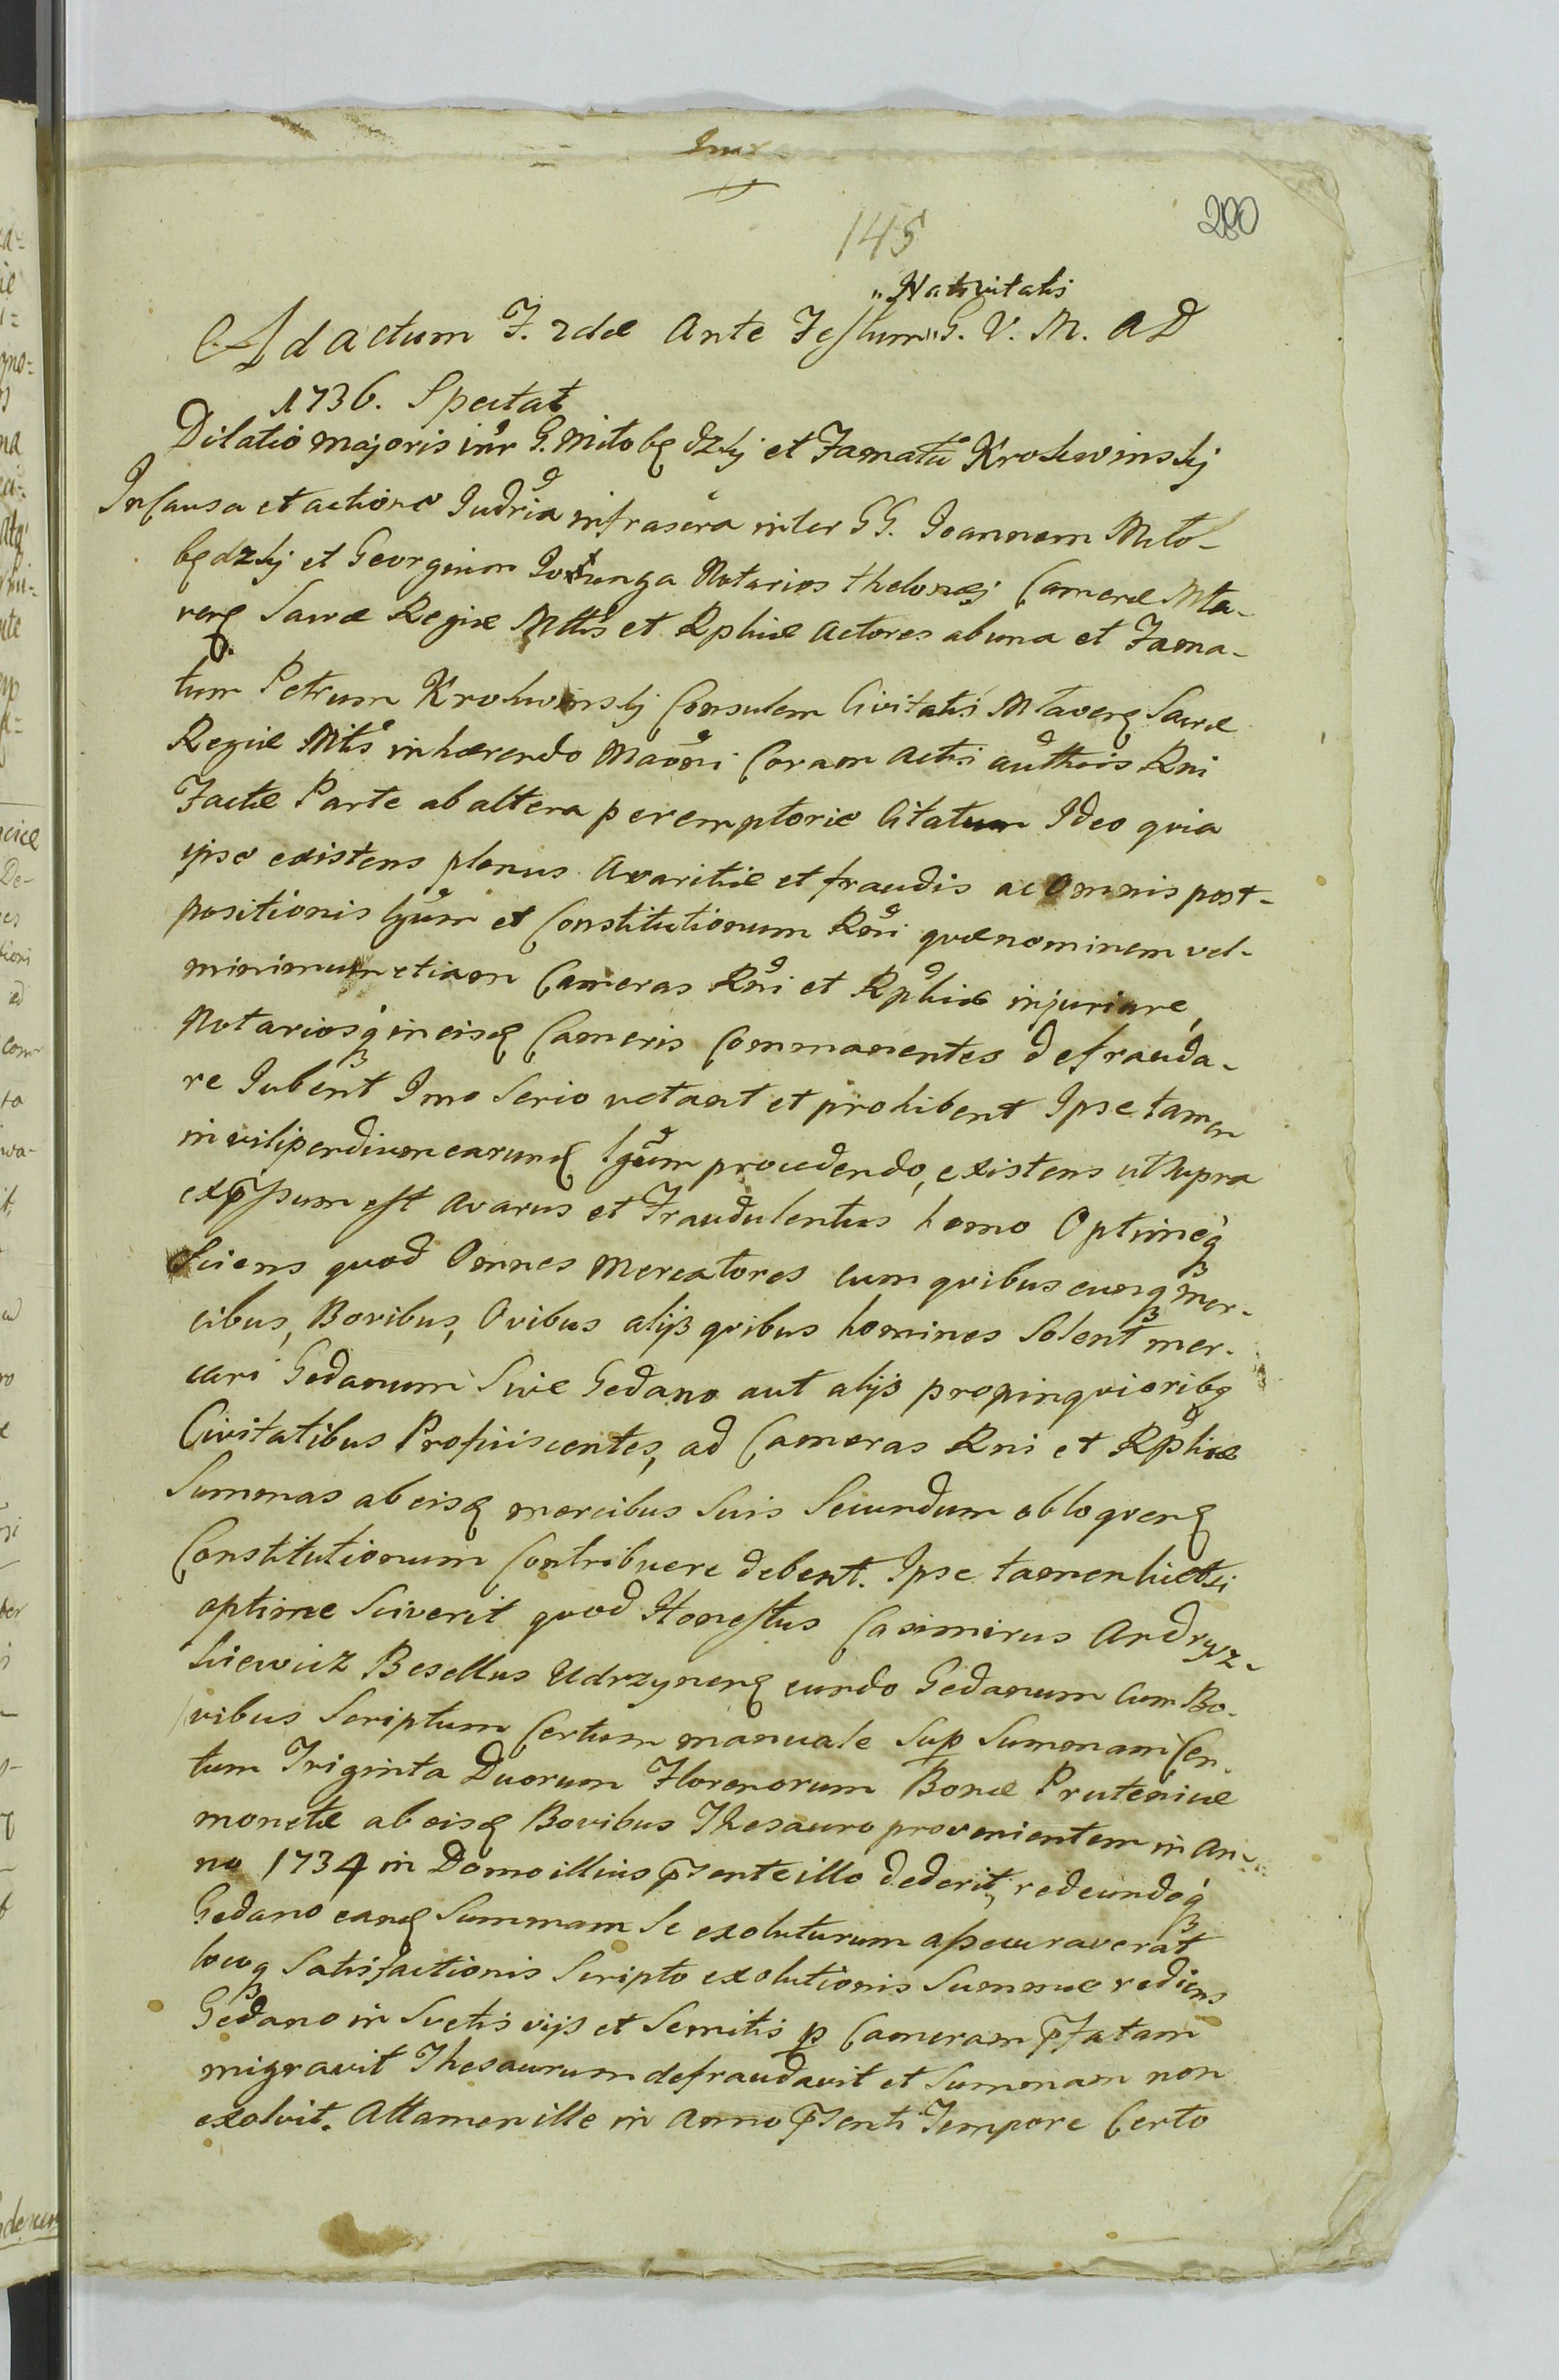 145
280
"Nativitatis
Ad actum F. 2dæ Ante Festum" G. V. M. AD
1736. Spectat
Dilatio majoris intr G. Miłobędzkj et Famatū Krokwinskj
In Causa et actione Judria infrascra inter GG. Joannem Miło-
będzkj et Georgium Notarios theloneej Cameræ Mła-
ven Sacræ Regiæ Mttis et Rphiæ Actores ab una et Fama-
tum Petrum Krokwinskj Consulem Civitatis Mlaven Sacræ
Regiæ Mtis inhærendo Maōni Coram Actis authcis Rni
Factæ Parte ab altera peremptorie Citatum Ideo quia
ipse existens plenus Avaritiæ et fraudis ac Omnis post-
positionis lgum et Constitutionum Rni quæ neminem vel
minimum etiam Cameras Rni et Rphiæ injuriare,
Notariosq in eisd Cameris Commanentes defrauda-
re Jubent Imo Serio vetant et prohibent Ipse tamen
in vilipendium earund lgum procedendo, existens ut supra
expssum est avarus et Fraudulentus homo Optimeq
Sciens quod Omnes Mercatores cum quibuscunq mer-
cibus, Bovibus, Ovibus alijs quibus homines Solent mer-
cari Gedanum Sive Gedano aut alijs propinquioribq
Civitatibus Proficiscentes, ad Cameras Rni et Rphiæ
Summas ab eisd mercibus Suis Secundum obloquen
Constitutionum Contribuere debent. Ipse tamen licet
optime Sciverit quod Honestus Casimirus Andrysz-
kiewicz Besellus Udrzynen eundo Gedanum Cum Bo-
vibus Scriptum Certum manuale Sup Summam Cen-
tum Triginta Duorum Florenorum Bonæ Prutenicæ
monetæ ab eisd Bovibus Thesauro provenientem in An-
no 1734 in Domo illius psente illo dederit, redeundoq
Gedano eand Summam Se exoluturum assecuraverat
locoq Satisfactionis Scripto exolutionis Summæ rediens
Gedano in Suetis vijs et Semitis p Cameram pfatam
migravit Thesaurum defraudavit et Summam non
exolvit. Attamen ille in Anno psenti Tempore Certo